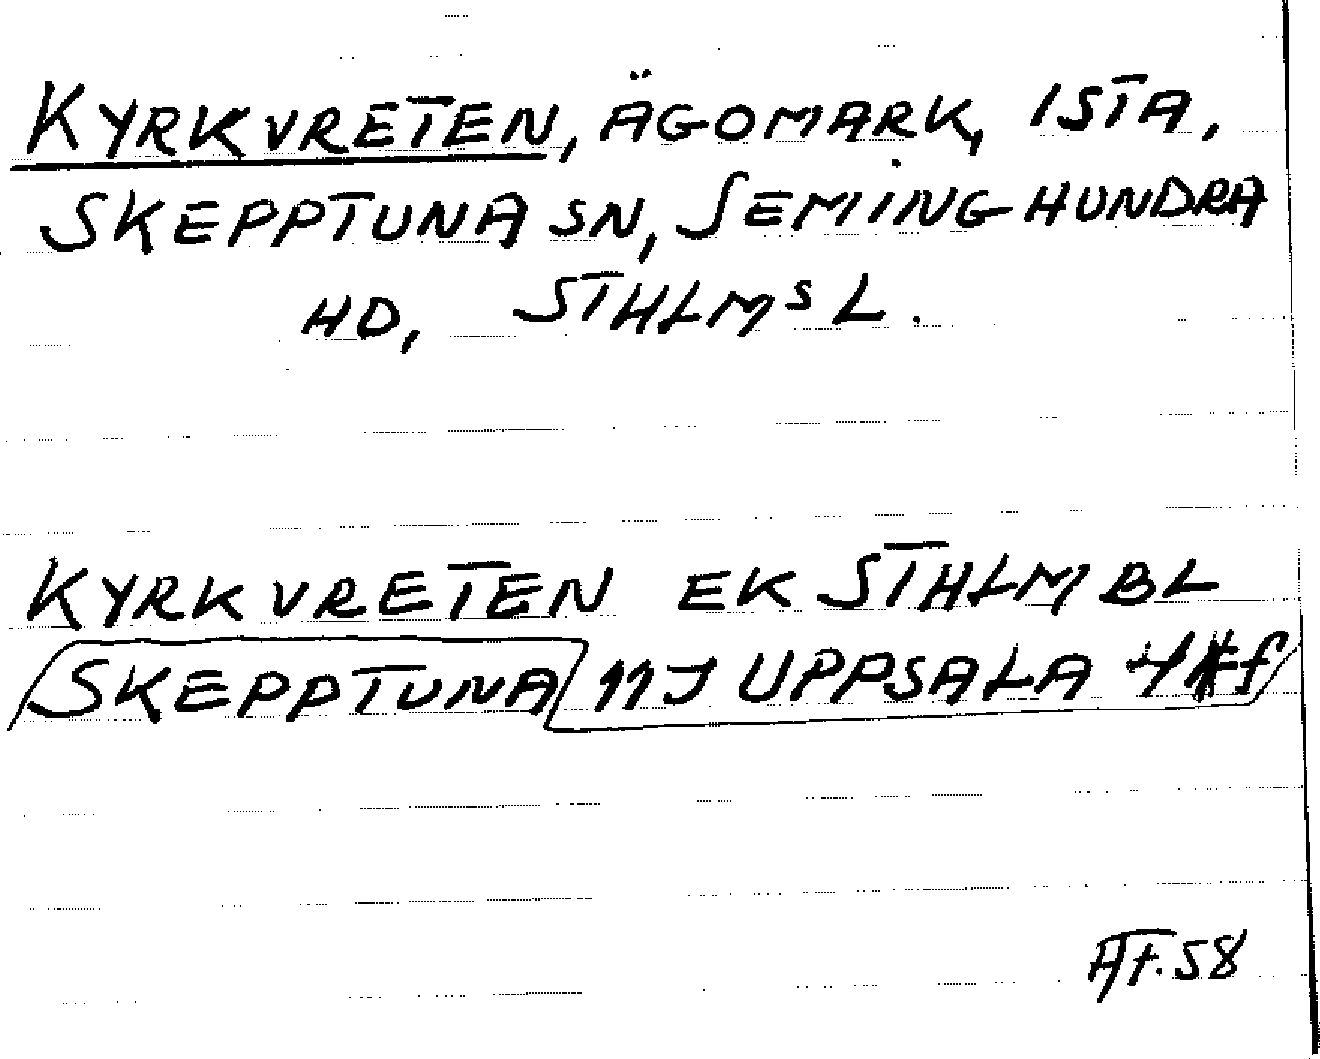 KYRKVRETEN, ÄGOMARK, ISTA,
SKEPPTUNA SN, SEMINGHUNDRA
HD, STHLMS L.
KYRKVRETEN EK STHLM BL
SKEPPTUNA 11J UPPSALA 4 f
AF.58